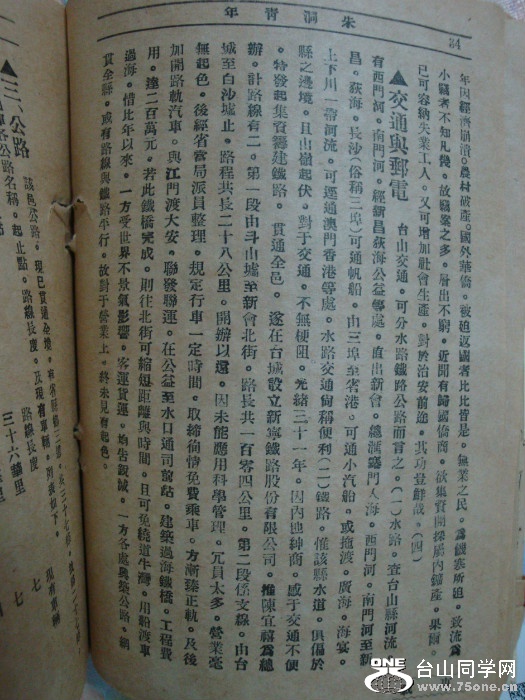 朱洞青年
34
年因經濟崩潰。農村破產。國外華僑。被迫返國者比比皆是。無業之民。爲飢寒所迫。致流爲
小竊者不知凡幾。故竊案之多。層出不窮。近聞有歸國僑商。欲集資開採屬內鑛產。果爾。
已可容納失業工人。又可增加社會生產。對於治安前途。其功豈鮮哉。(四)
▲交通與郵電
台山交通。可分水路鐵路公路而言之。(一)水路。查台山縣河流。
有西門河。南門河。經新昌荻海公益等處。直出新會。總滙崖門入海。西門河。南門河至新
昌。荻海。長沙(俗稱三埠)可通帆船。由三埠至省港。可通小汽船。或拖渡。廣海。海宴。
上下川一帶河流。可運通澳門香港等處。水路交通尙稱便利(二)鐵路。惟該縣水道。俱偏於
縣之邊境。且山嶺起伏。對于交通。不無梗阻。光緒三十一年。因內地紳商。感于交通不便
。特發起集資籌建鐵路。貫通全邑。遂在台城設立新寧鐵路股份有限公司。推陳宜禧爲總
辦。計路線有二。第一段由斗山墟至新會北街。路長共一百零四公里。第二段係支線。由台
城至白沙墟止。路程共長二十八公里。開辦以還。因未能應用科學管理。冗員太多。營業毫
無起色。後經省當局派員整理。規定行車一定時間。取締徇情免費乘車。方漸臻正軌。及後
加開路軌汽車。與江門渡大安。聯發聯運。在公益至水口通司前站。建築過海鐵橋。工程費
用。達二百萬元。若此鐵橋完成。則往北街可縮短距離與時間。且可免繞道牛灣。用船渡車
過海。惜比年以來。一方受世界不景氣影響。客運貨運。均告銳減。一方各處興築公路。網
貫全縣。或有路線與鐵路平行。故對于營業上。終未見有起色。
▲三、公路
該邑公路。現已貫通全境。
各公路名稱。起止點。路線長度。及現有車輛。列表如下。
路線長度
現有車輛
三十六華里
七
七
ONE
台山同学网
www.75one.cn